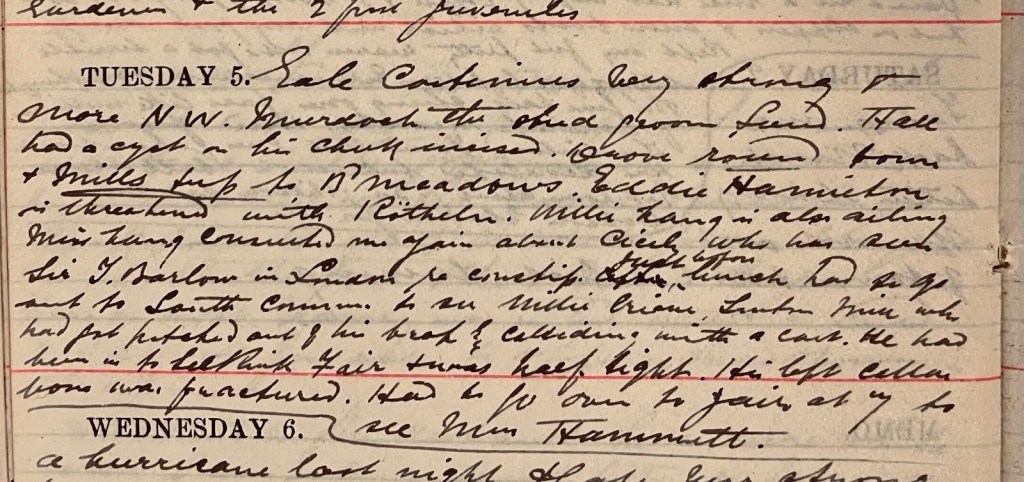 Gardener & the 2 first juveniles
TUESDAY 5. Gale Continues very strong &
more N W. Murdoch the stud groom Sund. Hall
had a cyst on his Cheek incised. Drove round town
& Mills to Bp meadows. Eddie Hamilton
is threatened with Rötheln. Willie Lang is also ailing
Miss Lang consulted me again about Cicely who has seen
Sir T. Barlow in London re constip. Just before lunch had to go
out to South common to see Willie Linton Mill who
had got pitched out of his break by colliding with a cart. He had
been in to Selkirk Fair & was half tight. His left collar
bone was fractured. Had to go over to Fair at to
WEDNESDAY 6. see Mrs Hammett.
a hurricane last night & Gale very strong